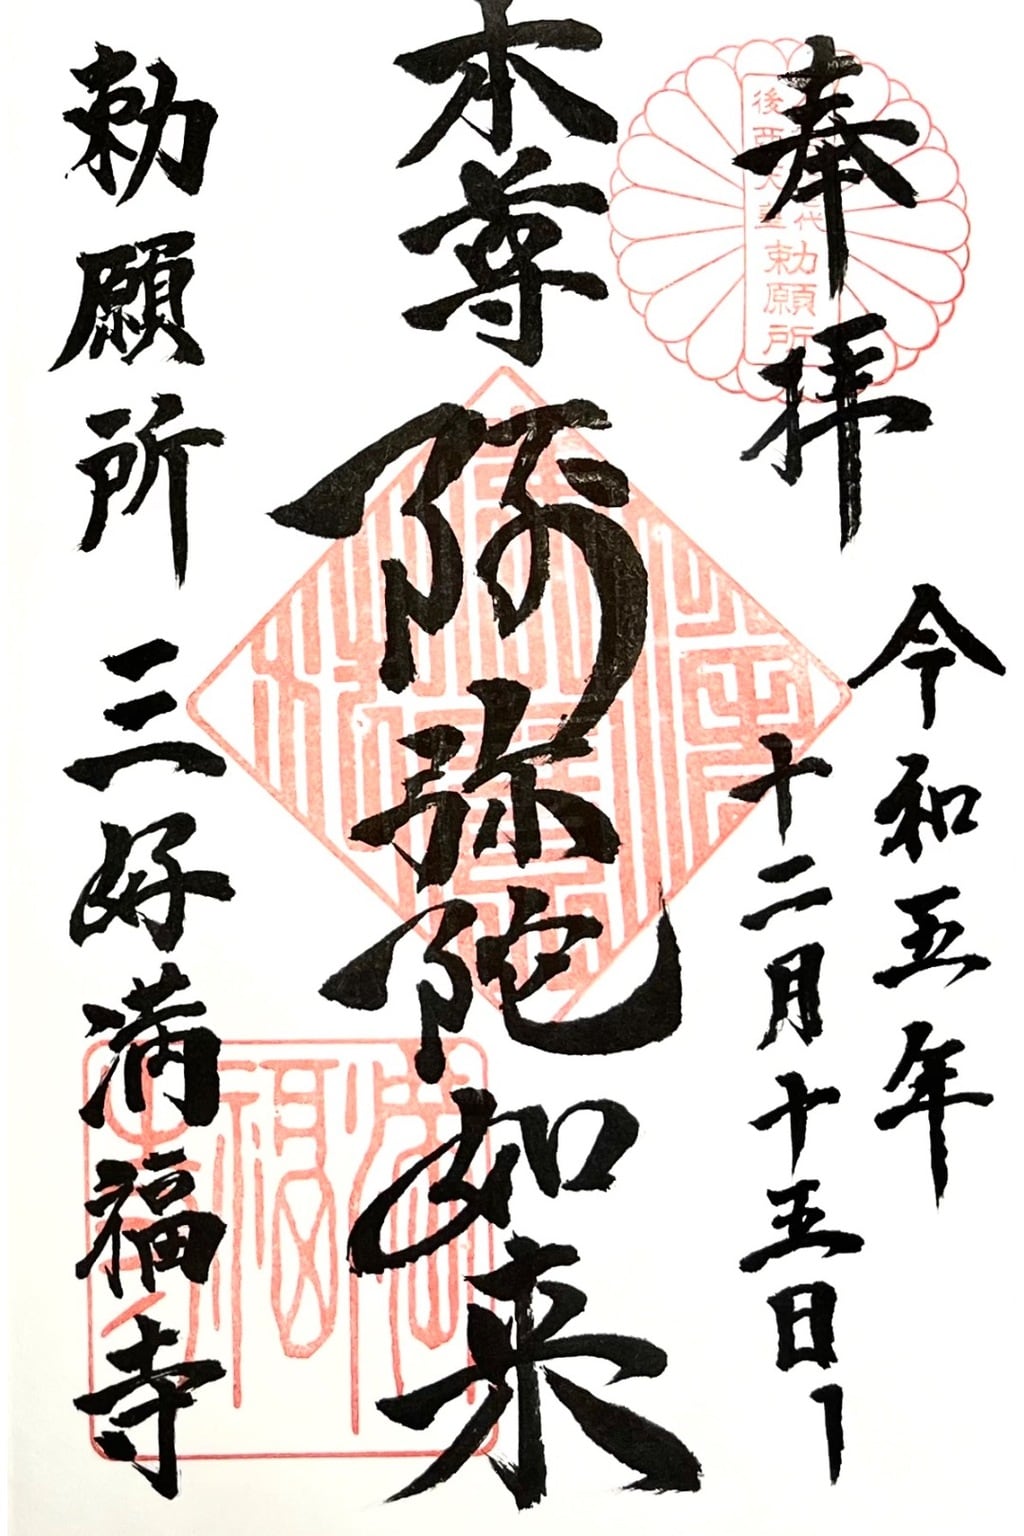 奉拝
令和五年
十二月十五日
本尊 阿弥陀如来
勅願所 三好満福寺
勅願所
満福寺